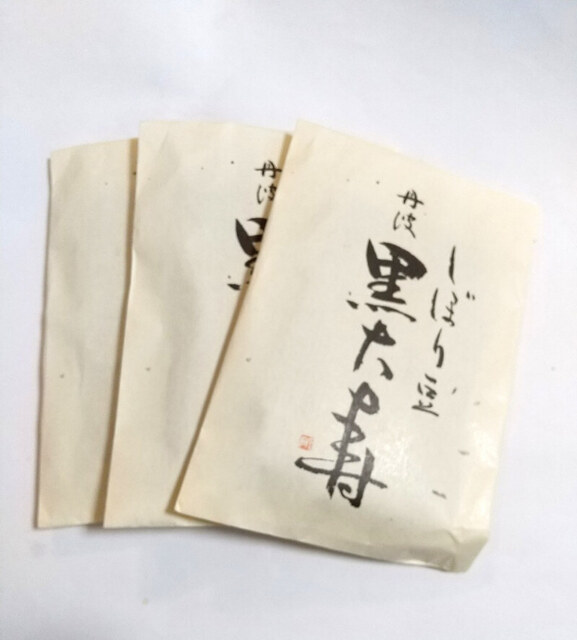 しぼり豆
丹波
黒大寿
丹波
黒